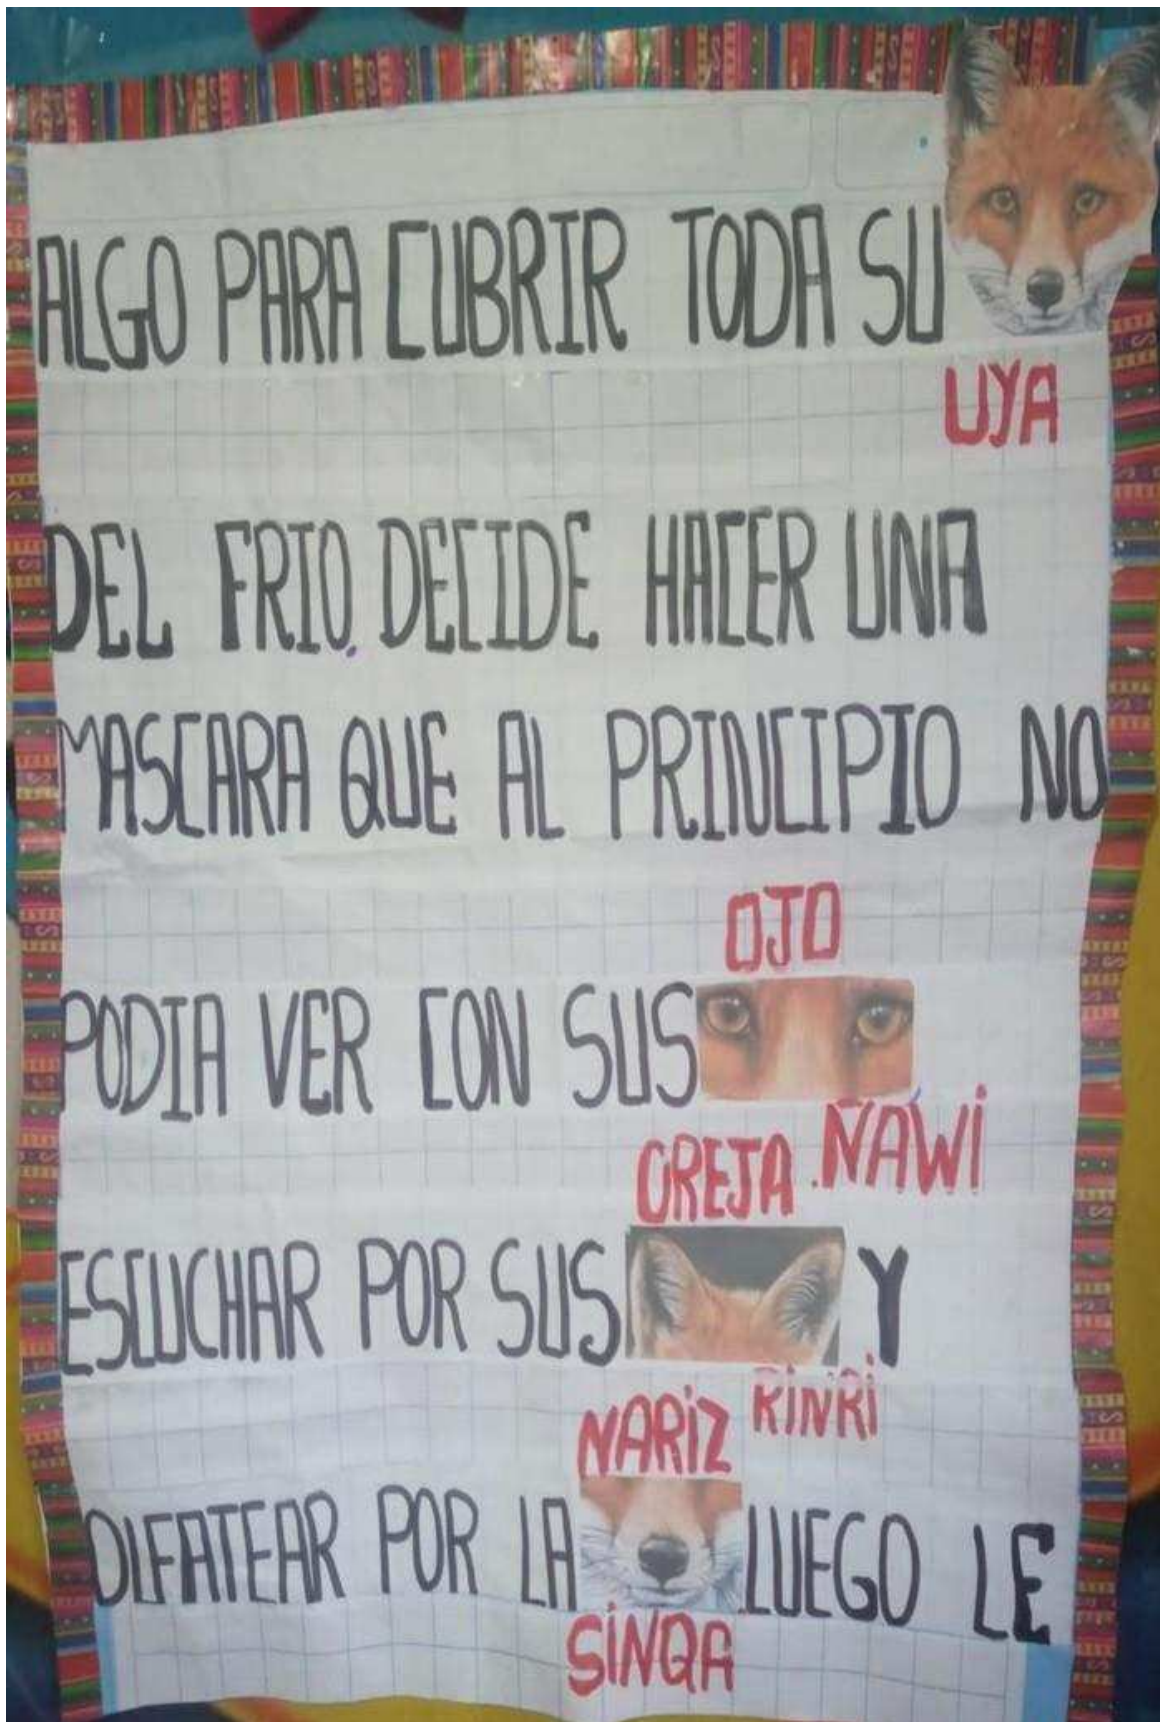 ALGO PARA CUBRIR TODA SU
UYA
DEL FRIO, DECIDE HACER UNA
MASCARA QUE AL PRINCIPIO NO
OJO
PODIA VER CON SUS
ÑAWi
OREJA
ESCUCHAR POR SUS Y
RiNRi
NARiZ
OLFATEAR POR LA LUEGO LE
SiNQA